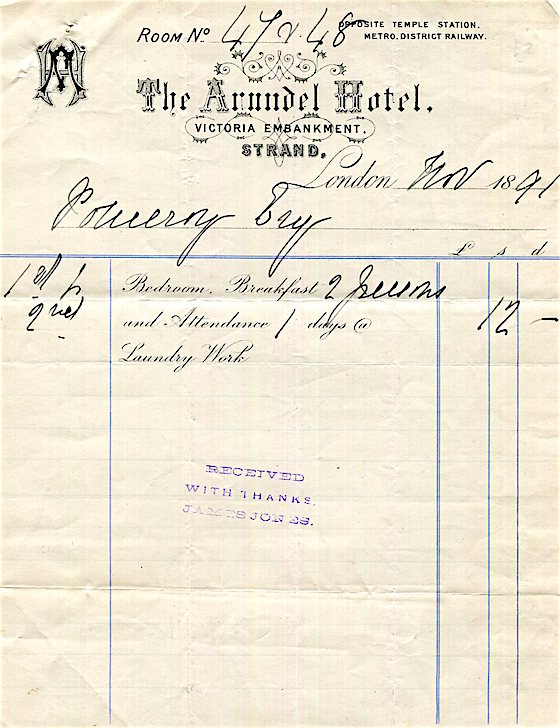 AH
ROOM Nº 47 & 48
OPPOSITE TEMPLE STATION.
METRO. DISTRICT RAILWAY.
The Arundel Hotel.
VICTORIA EMBANKMENT,
STRAND,
London Nov 1891
Pomeroy Esq
£ s d
1st to Bedroom, Breakfast 2 persons
2nd and Attendance 1 days @ 12 –
Laundry Work
RECEIVED
WITH THANKS.
JAMES JONES.